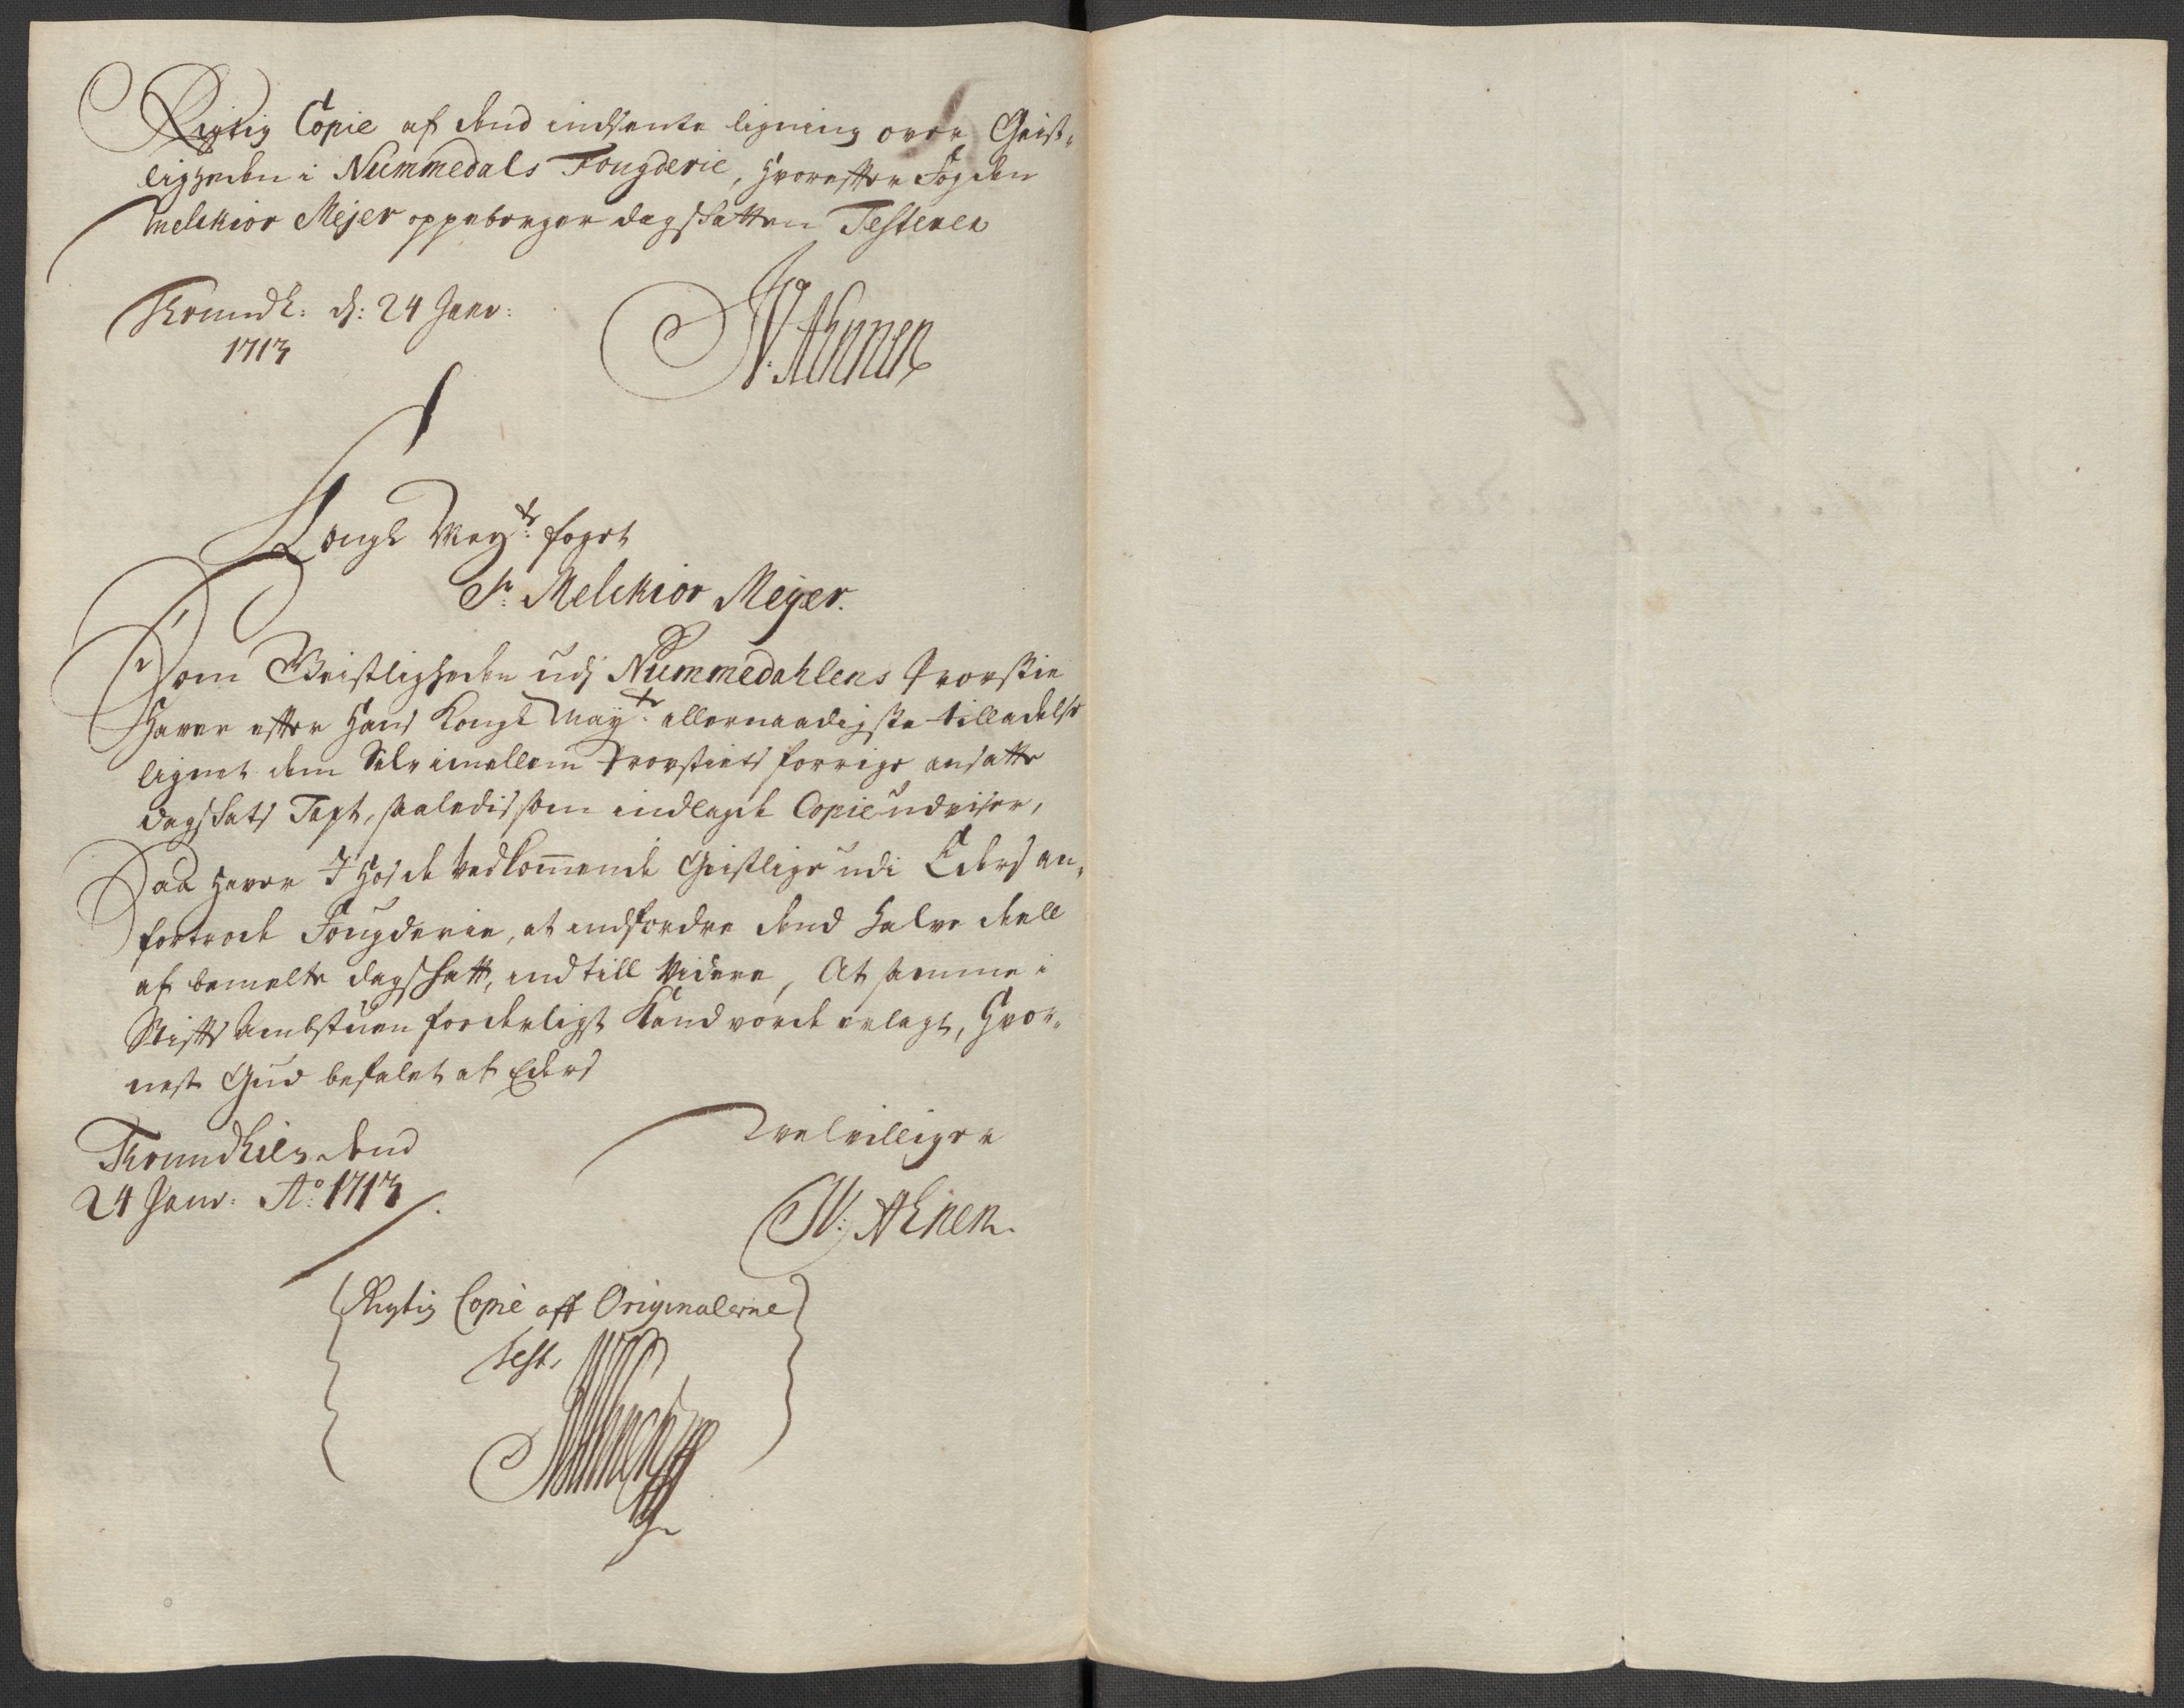 Rigtig Copie af dend indsente ligning over Geist-
ligheden i Nummedals Fougderie, hvorefter Fogden
Melchior Mejer oppeberger dagskatten Testerer
Trundh: d: 24 Janv:
1713
W: Ahnen
Kongl May:ts foget
Sr: Melchior Mejer.
Som Geistligheden udj Nummedahlens Provstie
Haver efter Hans Kongl May:ts allernaadigste tilladelse
lignet dem Selv imellem Provstiets forrige ansatte
dagskats Taxt, saaledis som indlagde Copie udviser,
Saa haver I hos de vedkommende Geistlige udi Eders an-
fortroede Fougderie, at indfordre dend halve deell
af bemelte dagskatt, indtill videre, At samme i
Stifts Ambstuen forderligst kand vorde erlagt, Hvor-
nest Gud befalet af Eders
Trundhiem dend
24 Janv: Ao: 1713
velvilligere
W: Ahnen
Rigtig Copie aff Originalerne
Test.